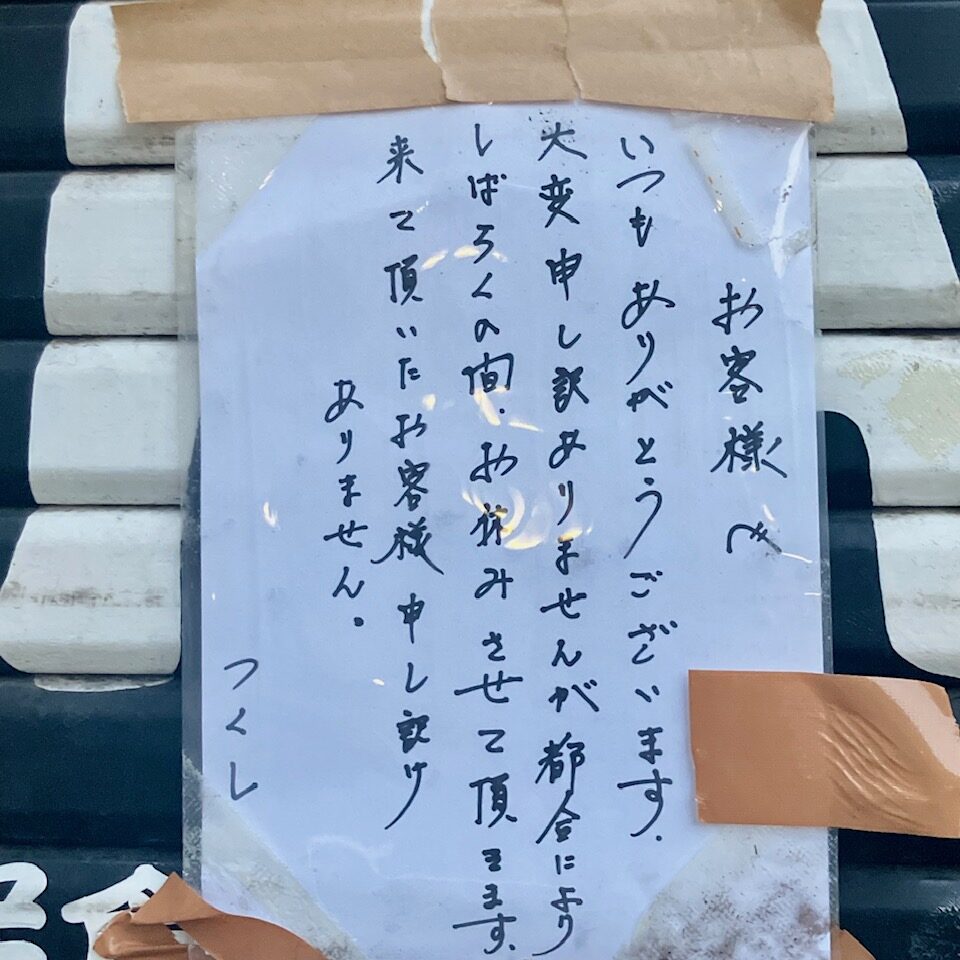 お客様へ
いつもありがとうございます.
大変申し訳ありませんが都合により
しばらくの間.お休みさせて頂きます.
来て頂いたお客様申し訳け
ありません.
つくし